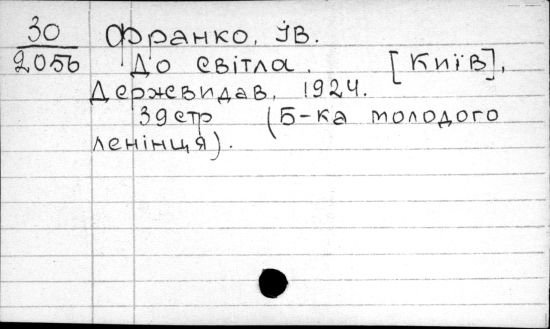 30 Франко, Ів.
2056 До світла. [Київ],
Держвидав, 1924.
39 стр (Б-ка молодого
ленінця).